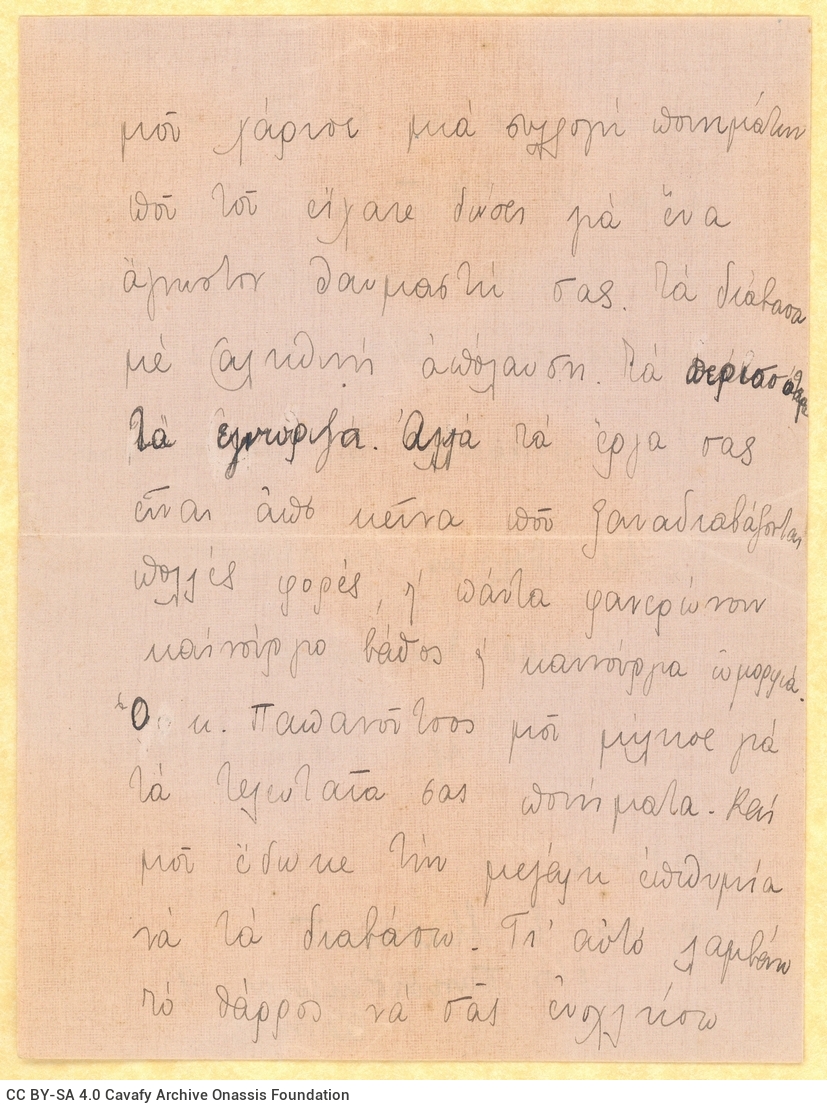 μοῦ χάρισε μιά συλλογή ποιημάτων
ποῦ τοῦ εἴχατε δώσει γιά ἕνα
ἄγνωστον θαυμαστή σας. Τά διάβασα
μέ ἀληθινή ἀπόλαυση. Τά περισσότερα
τά ἐγνώριζα. Ἀλλά τά ἔργα σας
εἶναι ἀπό κεῖνα ποῦ ξαναδιαβάζονται
πολλές φορές, γή πάντα φανερώνουν
καίνούργιο βάθος γ καινούργια ὠμορφιά.
Ὁ κ. Παπανοῦτσος μοῦ μίλησε γιά
τά τελευταῖα σας ποιήματα. Καί
μοῦ ἔδωκε τήν μεγάλη ἐπιθυμία
νά τά διαβάσω. Γι' αὐτό λαμβάνω
τό θάρρος νά σᾶς ἐνοχλήσω
CC BY-SA 4.0 Cavafy Archive Onassis Foundation